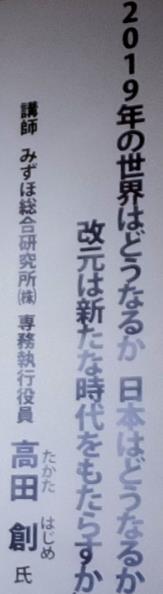 2019年の世界はどうなるか 日本はどうなるか
改元は新たな時代をもたらすか
講師 みずほ総合研究所㈱ 専務執行役員 高田 創 氏
たかた はじめ